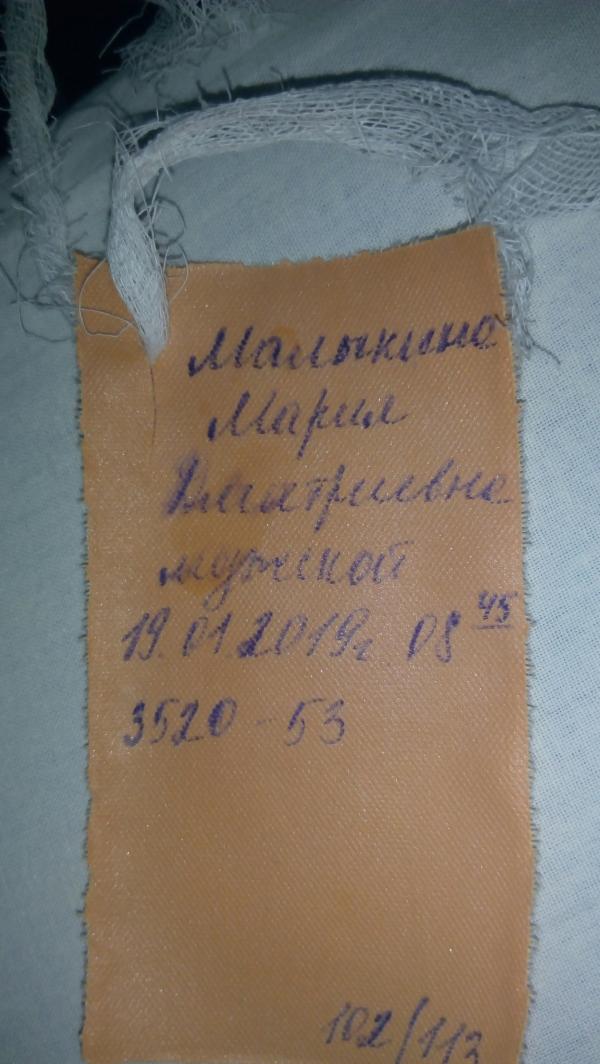 Малыкина
Мария
Дмитриевна
мужской
19.01.2019г. 08 45
3520-53
102/113